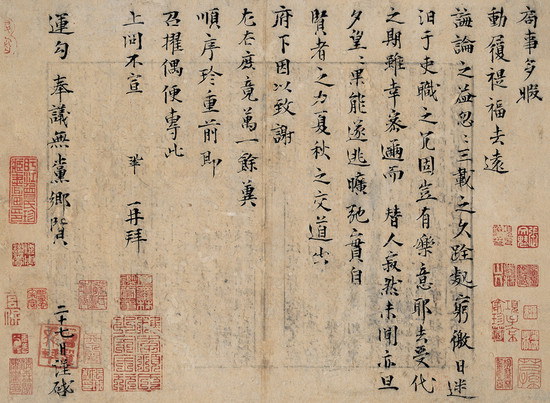 局事多暇
動履禔福去遠
誨論之益忽〻三載之久跧處窮徼日迷
汩于吏職之冗固豈有樂意耶去受代
之期雖幸密邇而替人寂然未聞亦旦
夕望〻果能遂逃曠弛實自
賢者之力夏秋之交道出
府下因以致謝
左右庶竟萬一餘冀
順序珍重前即
召擢偶便專此
上問不宣 鞏再拜
運勾奉議無黨鄉賢 二十七日謹啟